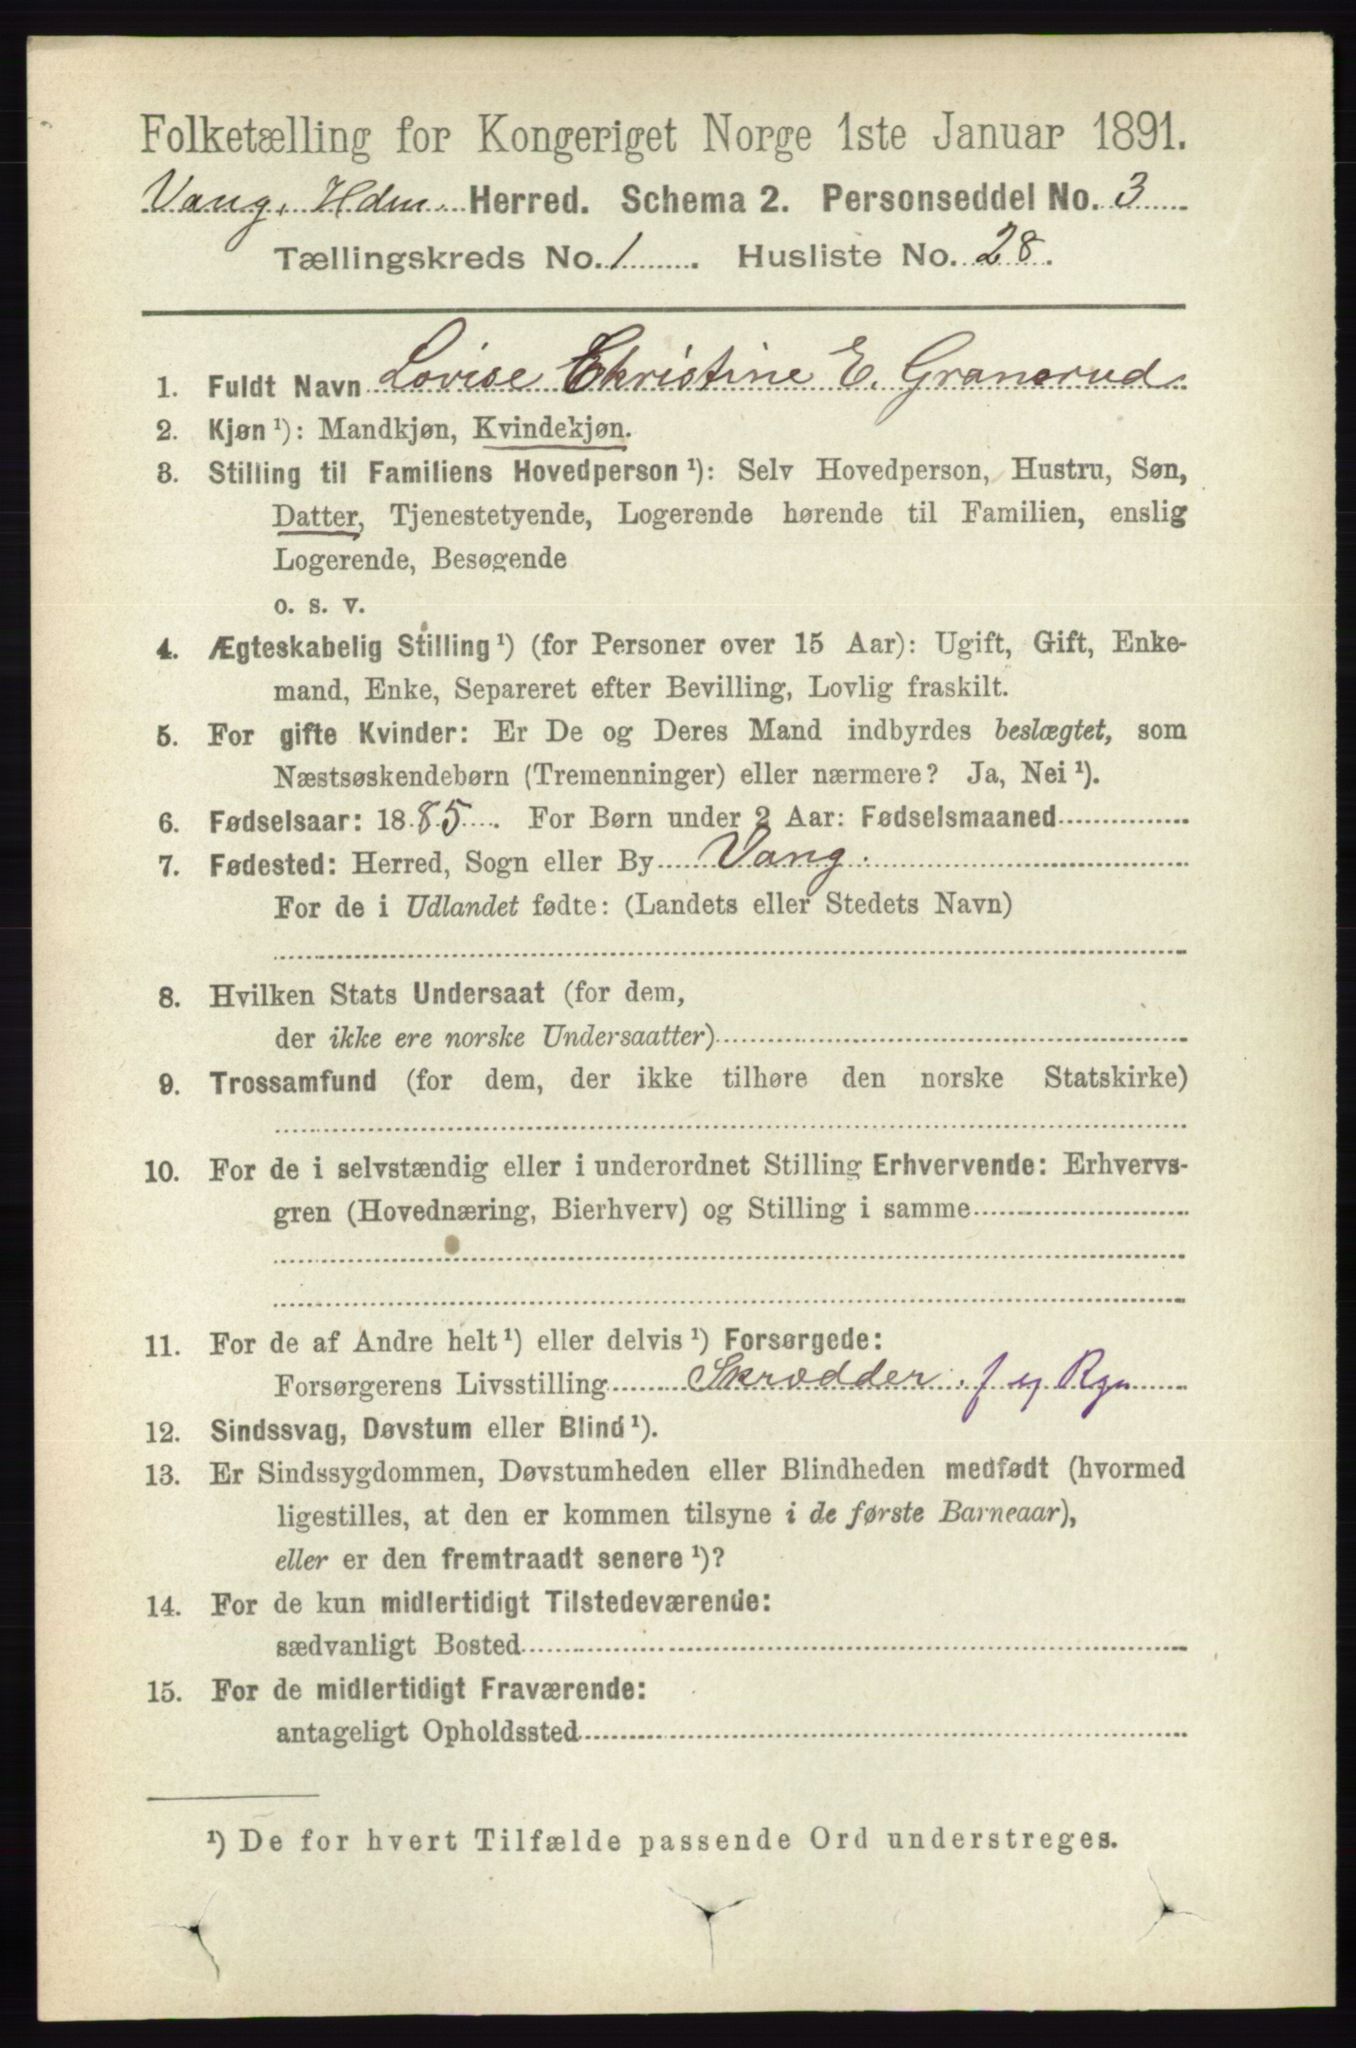 Folketælling for Kongeriget Norge 1ste Januar 1891.
Vang, Hdm. Herred. Schema 2. Personseddel No. 3
Tællingskreds No. 1. Husliste No. 28.
1. Fuldt Navn Lovise Christine E. Granerud
2. Kjøn ¹): Mandkjøn, Kvindekjøn.
3. Stilling til Familiens Hovedperson ¹): Selv Hovedperson, Hustru, Søn,
Datter, Tjenestetyende, Logerende hørende til Familien, enslig
Logerende, Besøgende
o. s. v.
4. Ægteskabelig Stilling ¹) (for Personer over 15 Aar): Ugift, Gift, Enke-
mand, Enke, Separeret efter Bevilling, Lovlig fraskilt.
5. For gifte Kvinder: Er De og Deres Mand indbyrdes beslægtet, som
Næstsøskendebørn (Tremenninger) eller nærmere? Ja, Nei ¹).
6. Fødselsaar: 1885. For Børn under 2 Aar: Fødselsmaaned
7. Fødested: Herred, Sogn eller By Vang.
For de i Udlandet fødte: (Landets eller Stedets Navn)
8. Hvilken Stats Undersaat (for dem,
der ikke ere norske Undersaatter)
9. Trossamfund (for dem, der ikke tilhøre den norske Statskirke)
10. For de i selvstændig eller i underordnet Stilling Erhvervende: Erhvervs-
gren (Hovednæring, Bierhverv) og Stilling i samme
11. For de af Andre helt ¹) eller delvis ¹) Forsørgede:
Forsørgerens Livsstilling Skrædder. f
12. Sindssvag, Døvstum eller Blind ¹).
13. Er Sindssygdommen, Døvstumheden eller Blindheden medfødt (hvormed
ligestilles, at den er kommen tilsyne i de første Barneaar),
eller er den fremtraadt senere ¹)?
14. For de kun midlertidigt Tilstedeværende:
sædvanligt Bosted
15. For de midlertidigt Fraværende:
antageligt Opholdssted
¹) De for hvert Tilfælde passende Ord understreges.